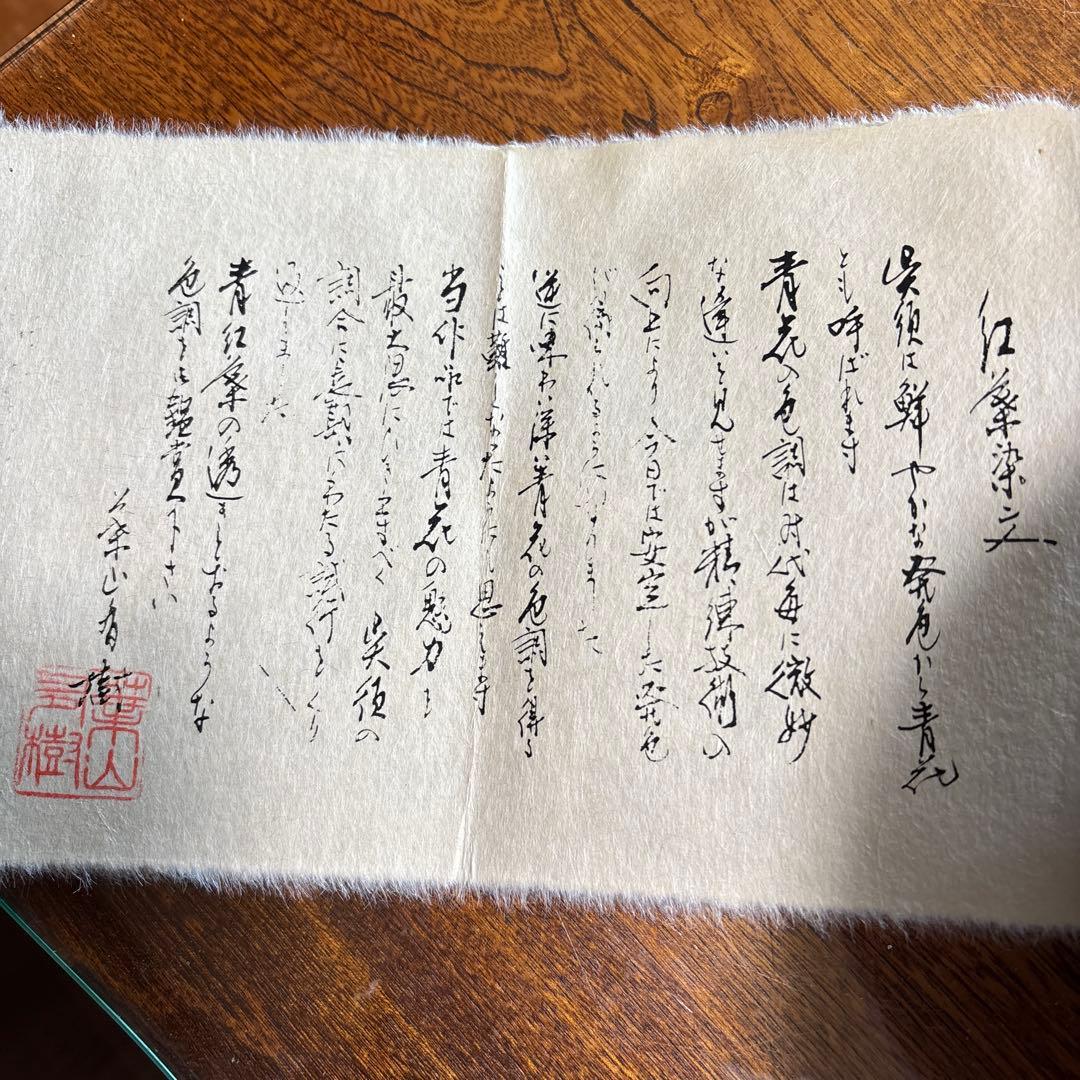 紅葉染文
呉須は鮮やかな発色から青花
とも呼ばれます
青花の色調は時代毎に微妙
な違いを見せますが精練技術の
向上により今日では安定した発色
が得られるようになりました
逆に味わい深い青花の色調を得る
ことは難しくなったようにも思えます
当作品では青花の魅力を
最大限に引き出すべく呉須の
調合に長期にわたる試行をくり
返しました
青紅葉の透きとおるような
色調をご鑑賞下さい
葉山有樹
葉山
有樹